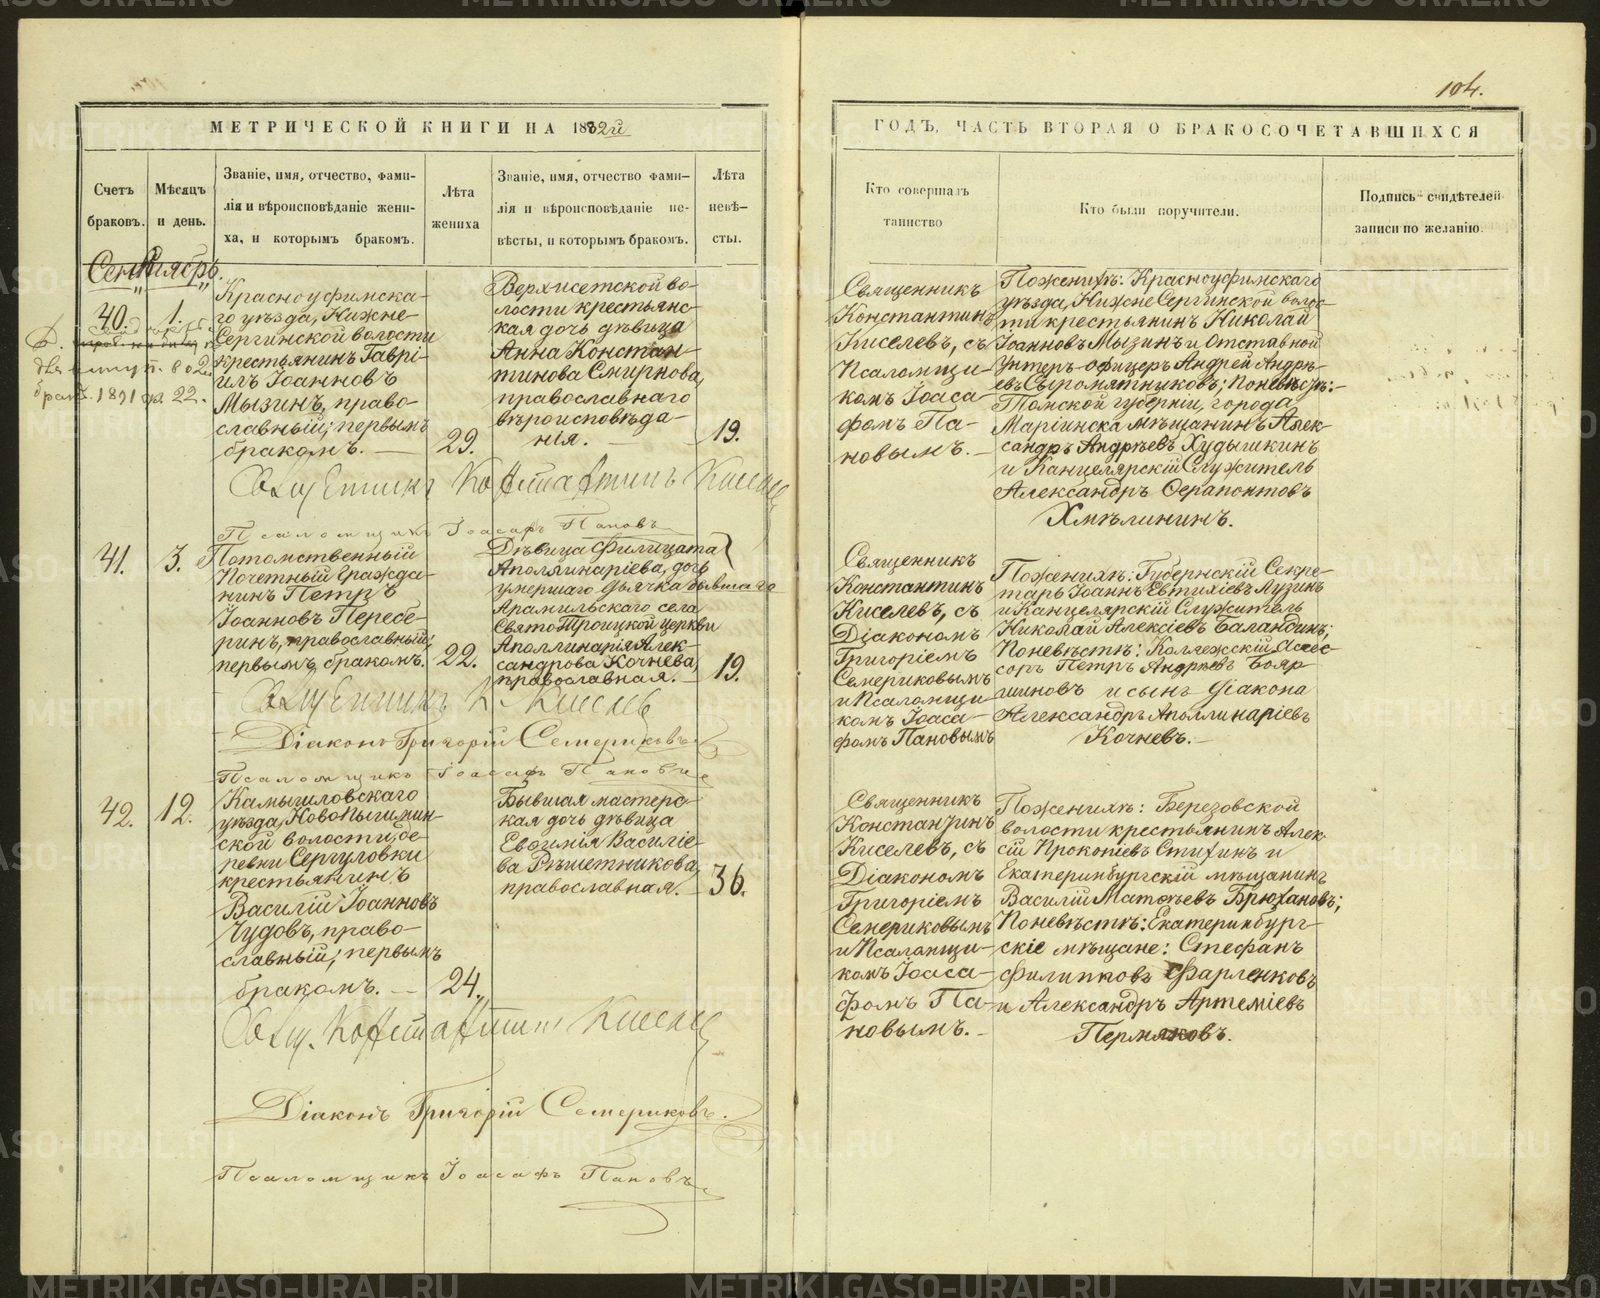 104.
МЕТРИЧЕСКОЙ КНИГИ НА 1882й
ГОДЪ, ЧАСТЬ ВТОРАЯ О БРАКОСОЧЕТАВШИХСЯ
Счетъ
браковъ.
Мѣсяцъ
и день.
Званіе, имя, отчество, фами-
лія и вѣроисповѣданіе жени-
ха, и которымъ бракомъ.
Лѣта
жениха
Званіе, имя, отчество фами-
лія и вѣроисповѣданіе не-
вѣсты, и которымъ бракомъ.
Лѣта
невѣ-
сты.
Кто совершалъ
таинство
Кто были поручители.
Подпись свидѣтелей
записи по желанію.
Сентябрь.
40.
1.
бракъ. 1891 22.
Красноуфимска-
го уѣзда, Нижне-
Сергинской волости
крестьянинъ Гаврі-
илъ Іоанновъ
Мызинъ, право-
славный; первымъ
бракомъ.
29.
Верхисетской во-
лости крестьянс-
кая дочь дѣвица
Анна Констан-
тинова Смирнова,
православнаго
вѣроисповѣда-
нія.
19.
Священникъ
Константинъ
Киселевъ, съ
Псаломщи-
комъ Іоаса-
фомъ Па-
новымъ.
По женихѣ: Красноуфимскаго
уѣзда, НижнеСергинской волос-
ти крестьянинъ Николай
Іоанновъ Мызинъ и Отставной
Унтеръ-офицеръ Андрей Андрѣ-
евъ Сыромятниковъ; по невѣстѣ:-
Томской губерніи, города
Маріинска мѣщанинъ Алек-
сандръ Андрѣевъ Худышкинъ
и Канцелярскій Служитель
Александръ Серапонтовъ
Хмѣлининъ.
Священникъ Константинъ Киселевъ
Псаломщикъ Іоасафъ Пановъ
41.
3.
Потомственный
Почетный Гражда-
нинъ Петръ
Іоанновъ Пересе-
ринъ, православный;
первымъ бракомъ.
22.
Дѣвица Филицата
Аполлинаріева, дочь
умершаго дьячка бывшаго
Арамильскаго села
СвятоТроицкой церкви
Аполлинарія Алек-
сандрова Кочнева,
православная.
19.
Священникъ
Константинъ
Киселевъ, съ
Діакономъ
Григоріемъ
Семериковымъ
и Псаломщи-
комъ Іоаса-
фомъ Пановымъ
По женихѣ: Губернскій Секре-
тарь Іоаннъ Евтихіевъ Лузинъ
и Канцелярскій Служитель
Николай Алексіевъ Баландинъ;
По невѣстѣ: Коллежскій Асес-
соръ Петръ Андрѣевъ Бояр-
шиновъ и сынъ діакона
Александръ Аполлинаріевъ
Кочневъ.
Священникъ К. Киселевъ
Діаконъ Григорій Семериковъ
Псаломщикъ Іоасафъ Пановъ
42.
12.
Камышловскаго
уѣзда, НовоПышмин-
ской волости, де-
ревни Сергуловки
крестьянинъ
Василій Іоанновъ
Чудовъ, право-
славный; первымъ
бракомъ.
24.
Бывшая мастерс-
кая дочь дѣвица
Евгенія Василіе-
ва Рѣшетникова,
православная.
36.
Священникъ
Константинъ
Киселевъ, съ
Діакономъ
Григоріемъ
Семериковымъ
и Псаломщи-
комъ Іоаса-
фомъ Па-
новымъ.
По женихѣ: Березовской
волости крестьянинъ Алек-
сій Прокопіевъ Стихинъ и
Екатеринбургскій мѣщанинъ
Василій Матѳеевъ Брюхановъ;
По невѣстѣ: Екатеринбург-
скіе мѣщане: Стефанъ
Филипповъ Фарленковъ
и Александръ Артеміевъ
Пермяковъ.
Свящ. Константинъ Киселевъ
Діаконъ Григорій Семериковъ.
Псаломщикъ Іоасафъ Пановъ
METRIKI.GASO-URAL.RU